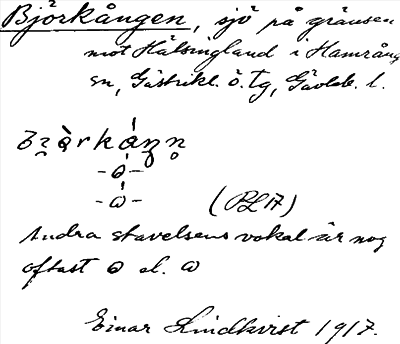 Björkången, sjö på gränsen
mot Hälsingland i Hamrång
sn, Gästrikl. ö. tg, Gävleb. l.
(BL 17)
Andra stavelsens vokal är nog
oftast
el.
Einar Lindkvist 1917.